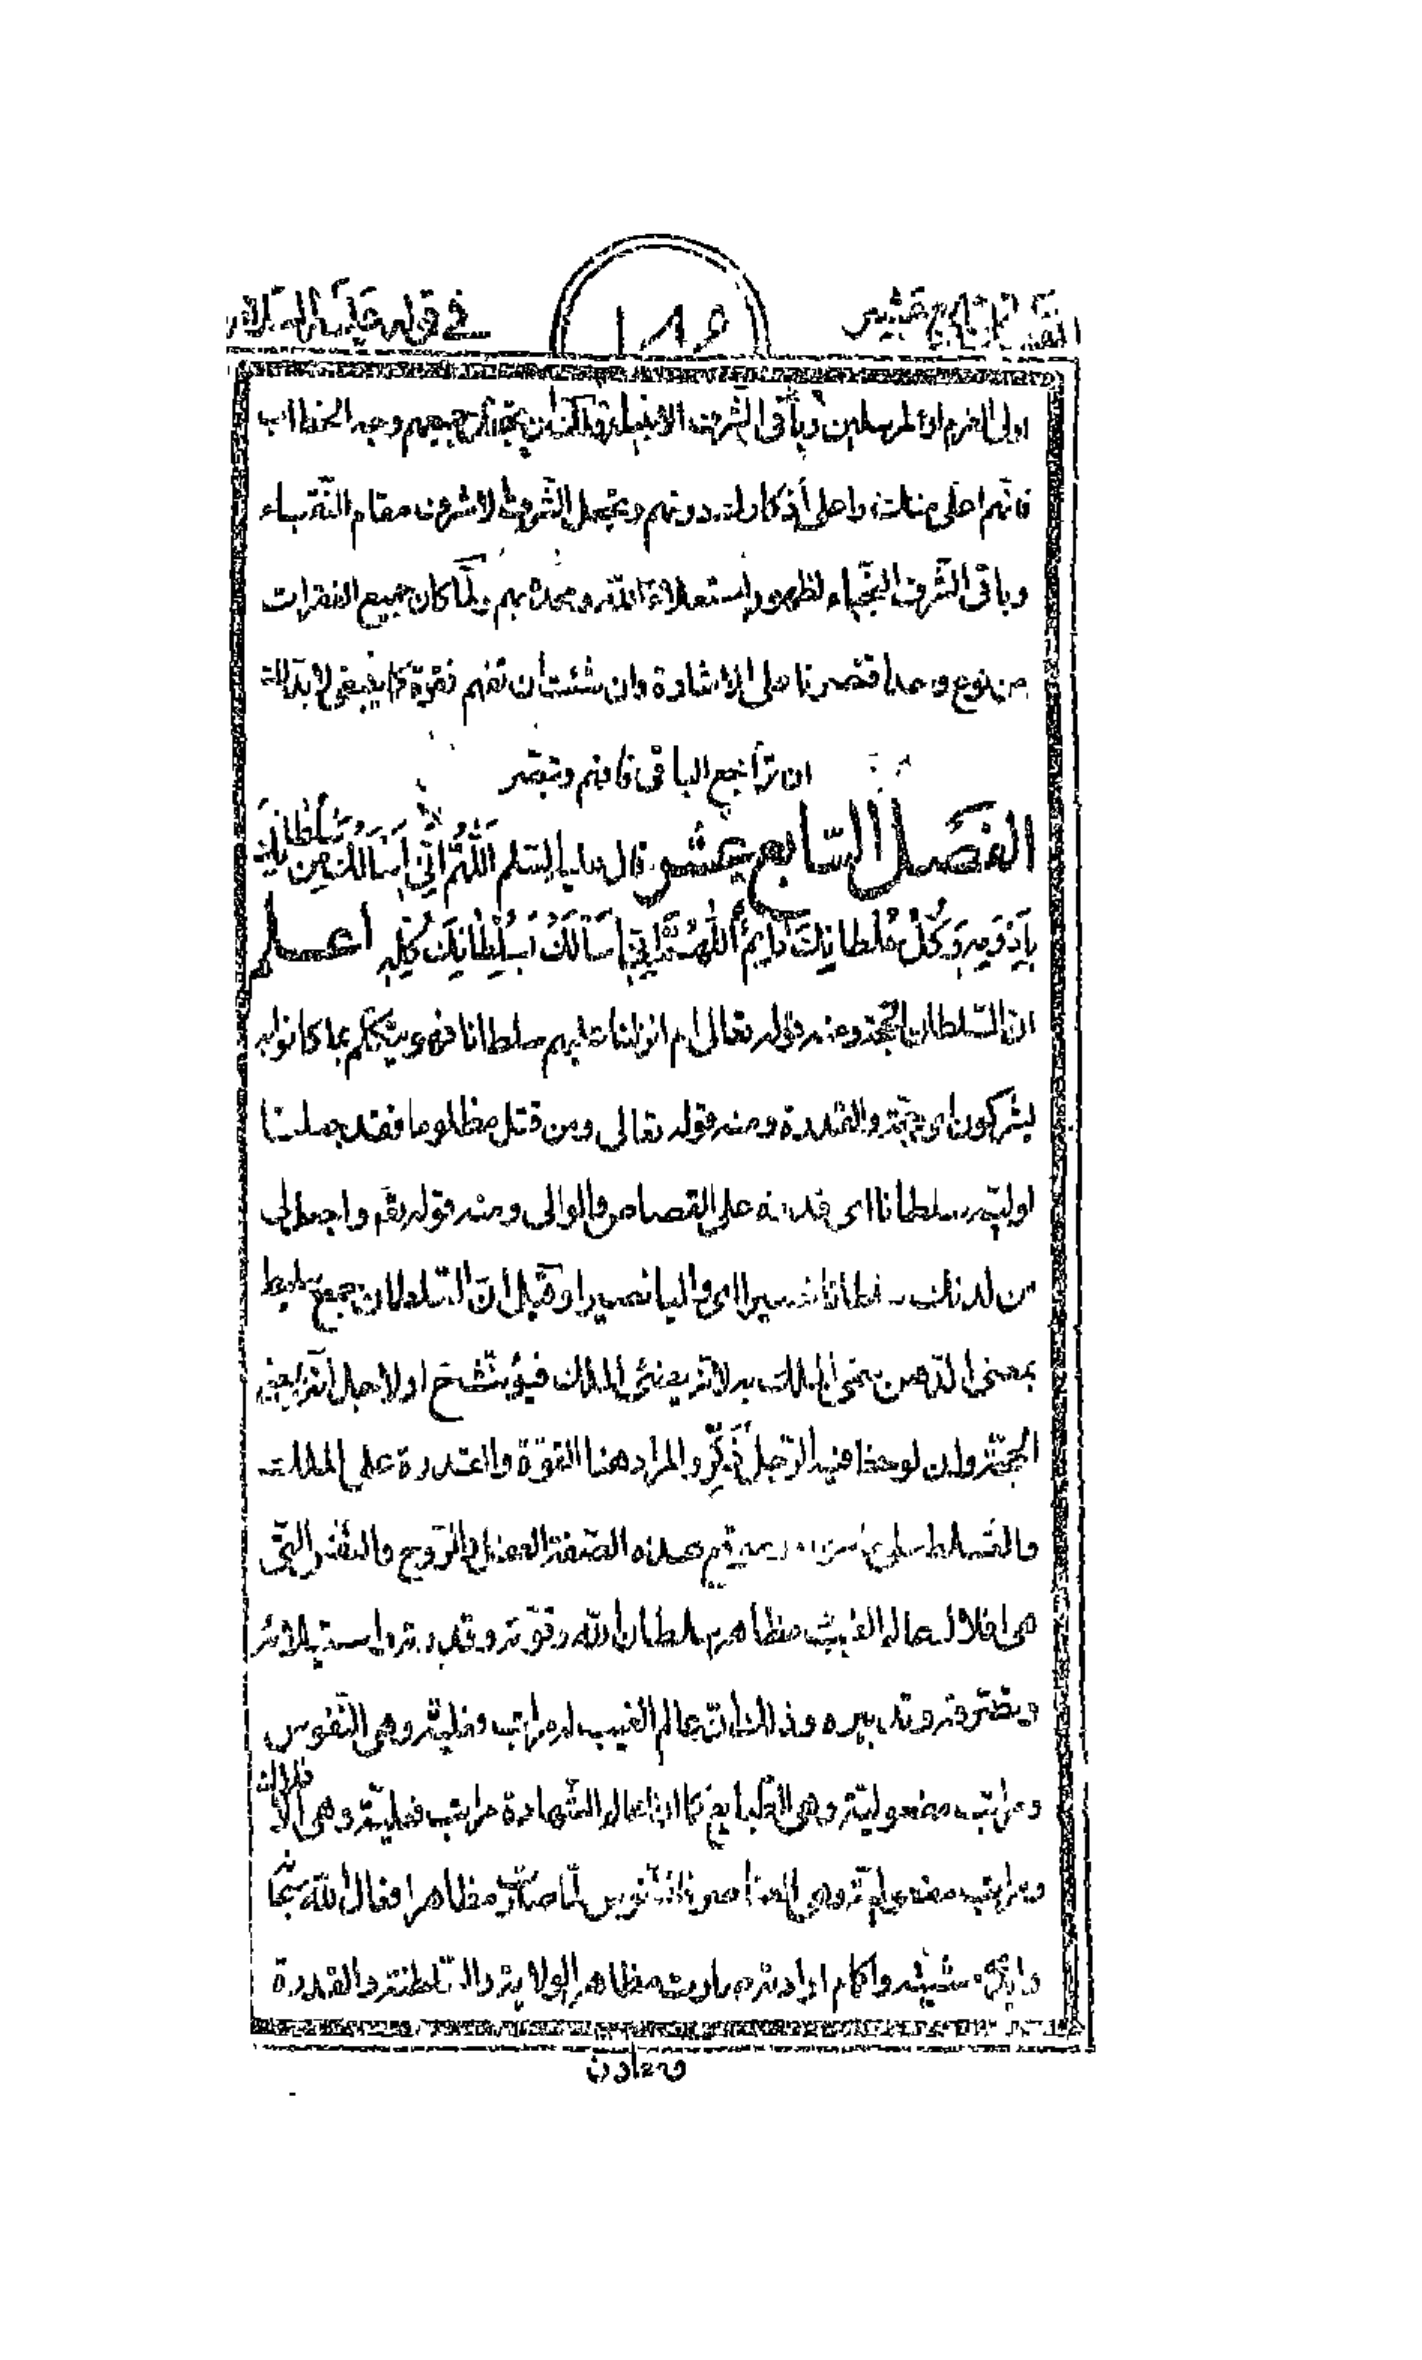 في قوله عليه السلام
١٨٥
الفصل السابع عشر
اولي العزم او المرسلين وباقي الشرف الانبياء جميعهم وجه الخطاب
فانهم اعلى واعلى دونهم ويجعل الشرف الاشرف مقام النقباء
وباقي الشرف النجباء لظهور استعلاء الله ومجده بهم ولما كان جميع الفقرات
من نوع واحد اقتصرنا على الاشارة وان شئت ان تفهم فقرة كما ينبغي لا بد لك
ان تراجع الباقي فافهم وتبصر
الفَصلُ السّابع عشر قال عليه السلم اَللّهُمَّ اِنّي اَسْاَلُكَ مِنْ سُلْطانِكَ
بِاَدْوَمِهِ وَكُلُّ سُلْطانِكَ دائِمٌ اَللّهُمَّ اِنّي اَسْاَلُكَ بِسُلْطانِكَ كُلِّهِ اعلم
ان السّلطان الحجّة ومنه قوله تعالى ام انزلنا عليهم سلطانا فهو يتكلّم بما كانوا به
يشركون اي حجّة والقدرة ومنه قوله تعالى ومن قتل مظلوما فقد جعلنا
لوليّه سلطانا اي قدرة على القصاص والوالي ومنه قوله تعم واجعل لي
من لدنك سلطانا نصيرا اي واليا نصيرا وقيل انّ السّلطان جمع سليط
بمعنى الدهن يضئ الملك به لانّه يضئ الملك فيؤنّث ح او لاجل انّه بمعنى
الحجّة وان لوحظ فيه الرّجل ذُكّر والمراد هنا القوّة والقدرة على الملك
والتسلط على هذه الصّفة العقل والرّوح والنّفس التي
هي افلاك عالم الغيب مظاهر سلطان الله وقوّته وقدرته واستيلائه
وتصرّفه وتدبيره وذلك انّ عالم الغيب له مراتب فعليّة وهي النّفوس
ومراتب مفعوليّة وهي الطّبايع كما ان لعالم الشّهادة مراتب فعليّة وهي الافلاك
ومراتب مفعوليّة وهي العناصر فالنّفوس لمّا صارت مظاهر افعال الله سبحانه
مشيّته واكمام ارادته صارت مظاهر الولاية والسّلطنة والقدرة